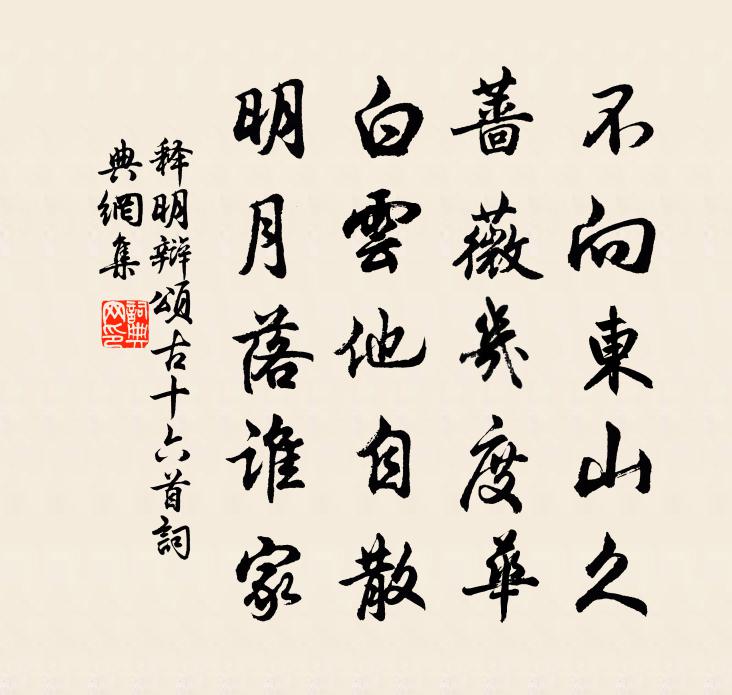 不向東山久
薔薇幾度華
白雲他自散
明月落誰家
释明辯頌古十六首詞
典網集
詞典
网印